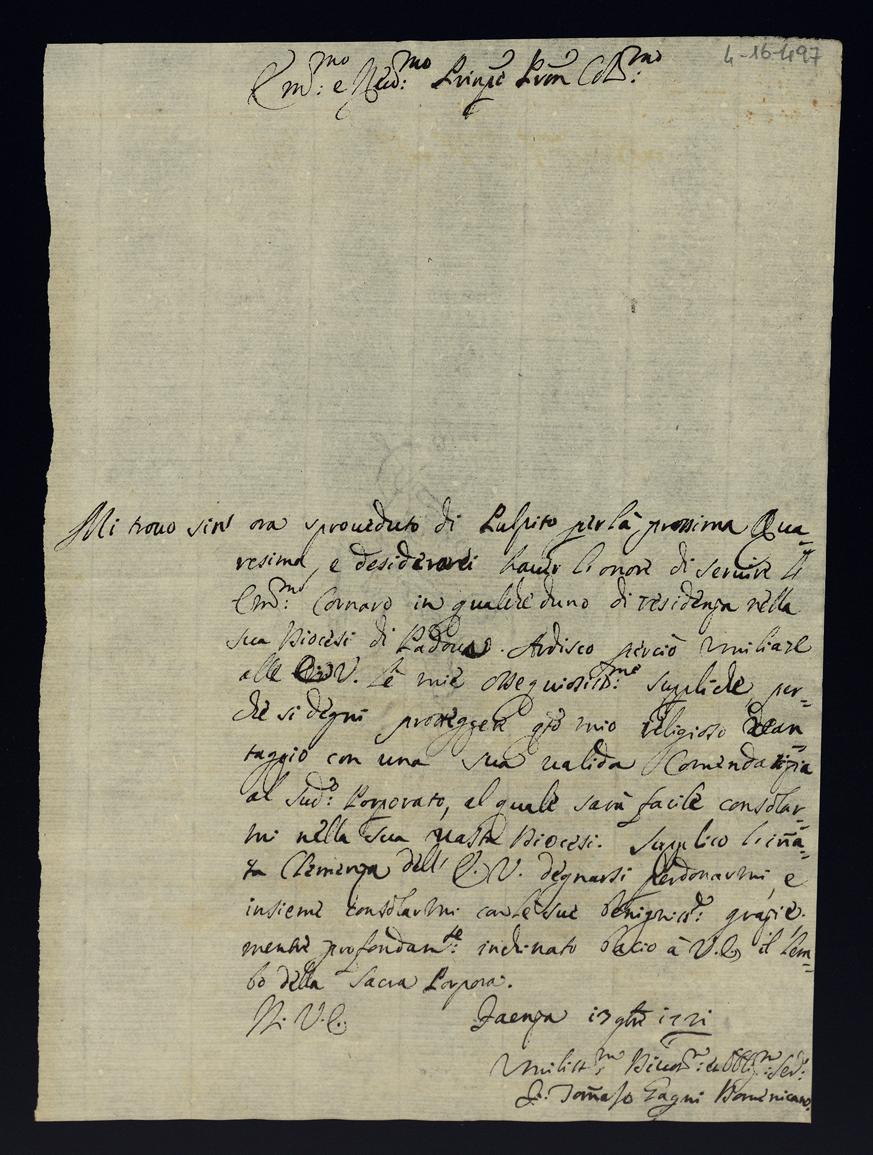 4-16-497
Em.mo: e Rev.mo: Prinpe Pron Col.mo:
Mi trovo sin' ora sproveduto di Pulpito per la prossima Qua=
resima, e desiderarei haver l'onore di servire l'
Em.mo: Cornaro in qualcheduno di residenza nella
sua Diocesi di Padova. Ardisco perciò umiliare
alle V. le mie ossequiosiss.me: suppliche per=
che si degni proteggere qto mio religioso van=
taggio con una sua valida Comendatizia
al Sud.o: Porporato, al quale sarà facile consolar=
mi nella sua vasta Diocesi. Supplico l'inna=
ta Clemenza dell' E. V. degnarsi perdonarmi, e
insieme consolarmi con le sue benigniss.e: grazie.
mentre profondam.te: inchinato bacio à V. E. il Lem=
bo della Sacra Porpora.
Di V. E.
Faenza 13 9bre 1721
Umiliss.o Divot.o: ed Obblig.o: Ser.e:
F. Tomaso Pagni Domenicano.